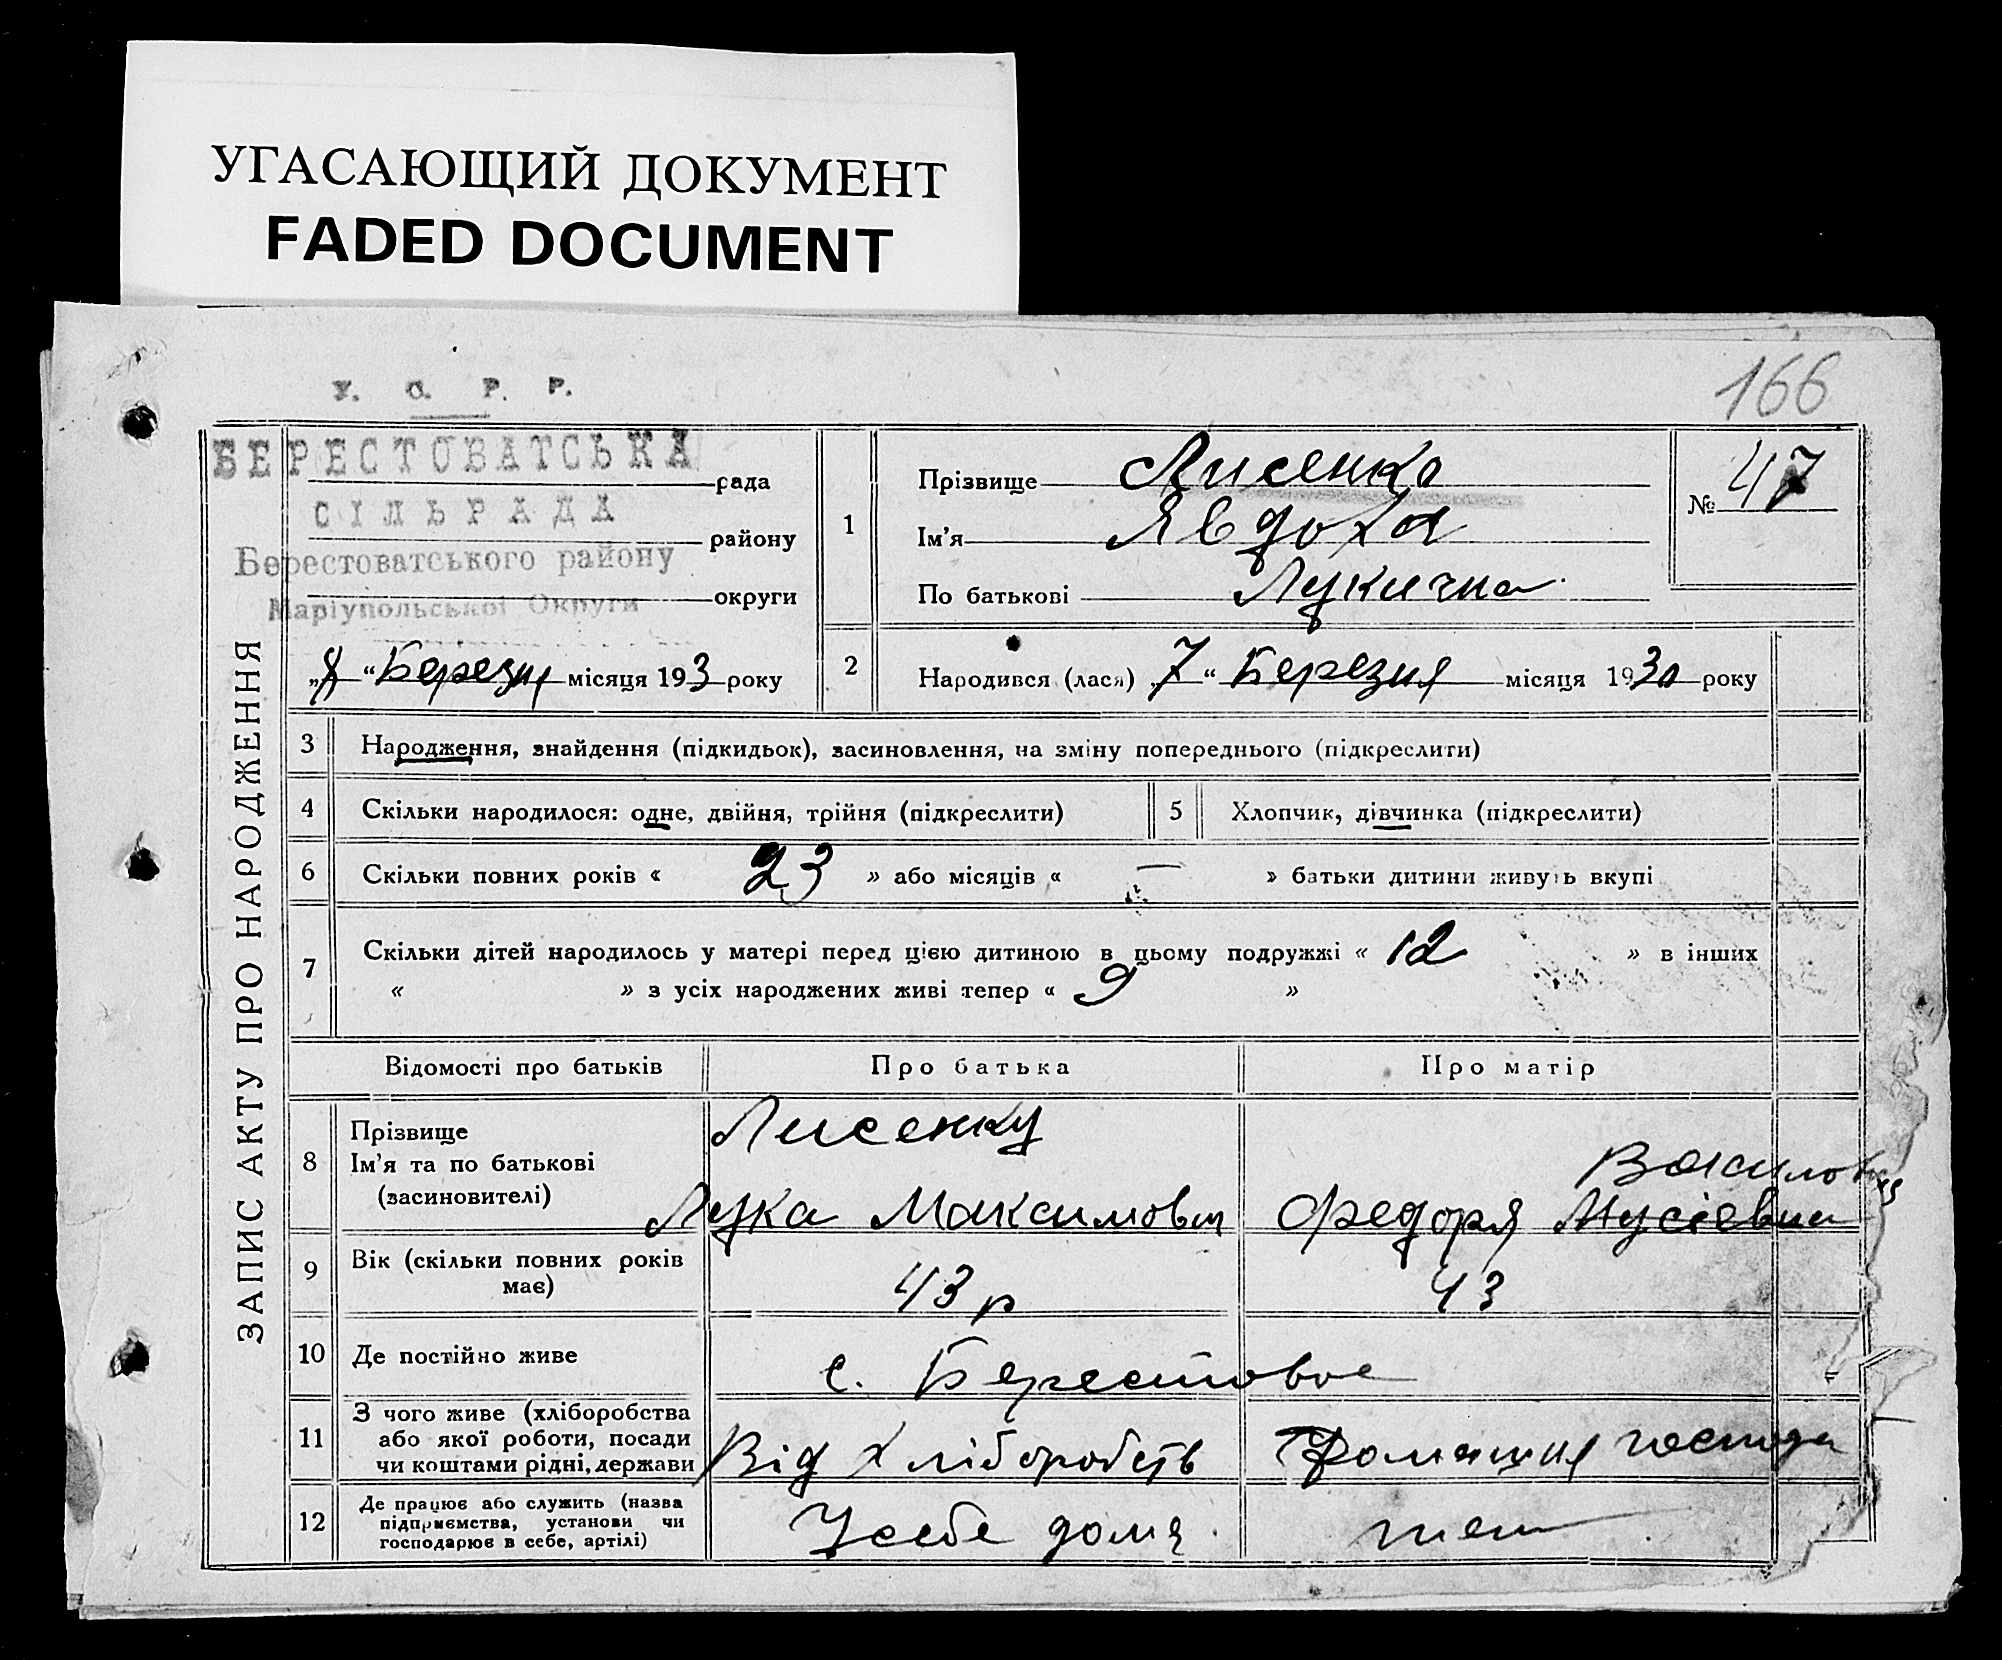 УГАСАЮЩИЙ ДОКУМЕНТ
FADED DOCUMENT
166
У. С. Р. Р.
БЕРЕСТОВАТСЬКА
рада
СІЛЬРАДА
району
Берестоватського району
округи
Маріупольської Округи
„8“ Березня місяця 193 року
1
Прізвище Лисенко
Ім'я Явдоха
По батькові Лукична
№ 47
2
Народився (лася) 7 “ Березня місяця 1930 року
ЗАПИС АКТУ ПРО НАРОДЖЕННЯ
3 Народження, знайдення (підкидьок), засиновлення, на зміну попереднього (підкреслити)
4 Скільки народилося: одне, двійня, трійня (підкреслити)
5 Хлопчик, дівчинка (підкреслити)
6 Скільки повних років « 23 » або місяців « — » батьки дитини живуть вкупі
7 Скільки дітей народилось у матері перед цією дитиною в цьому подружжі « 12 » в інших
« » з усіх народжених живі тепер « 9 »
Відомості про батьків Про батька Про матір
8 Прізвище
Ім'я та по батькові
(засиновителі)
Лисенку
Лука Максимович
Федоря Мусієвна
9 Вік (скільки повних років
має)
43 р
43
10 Де постійно живе
с. Берестовое
11 З чого живе (хліборобства
або якої роботи, посади
чи коштами рідні, держави
Від Хліборобств
Домашня господа
12 Де працює або служить (назва
підприємства, установи чи
господарює в себе, артілі)
У себе дома